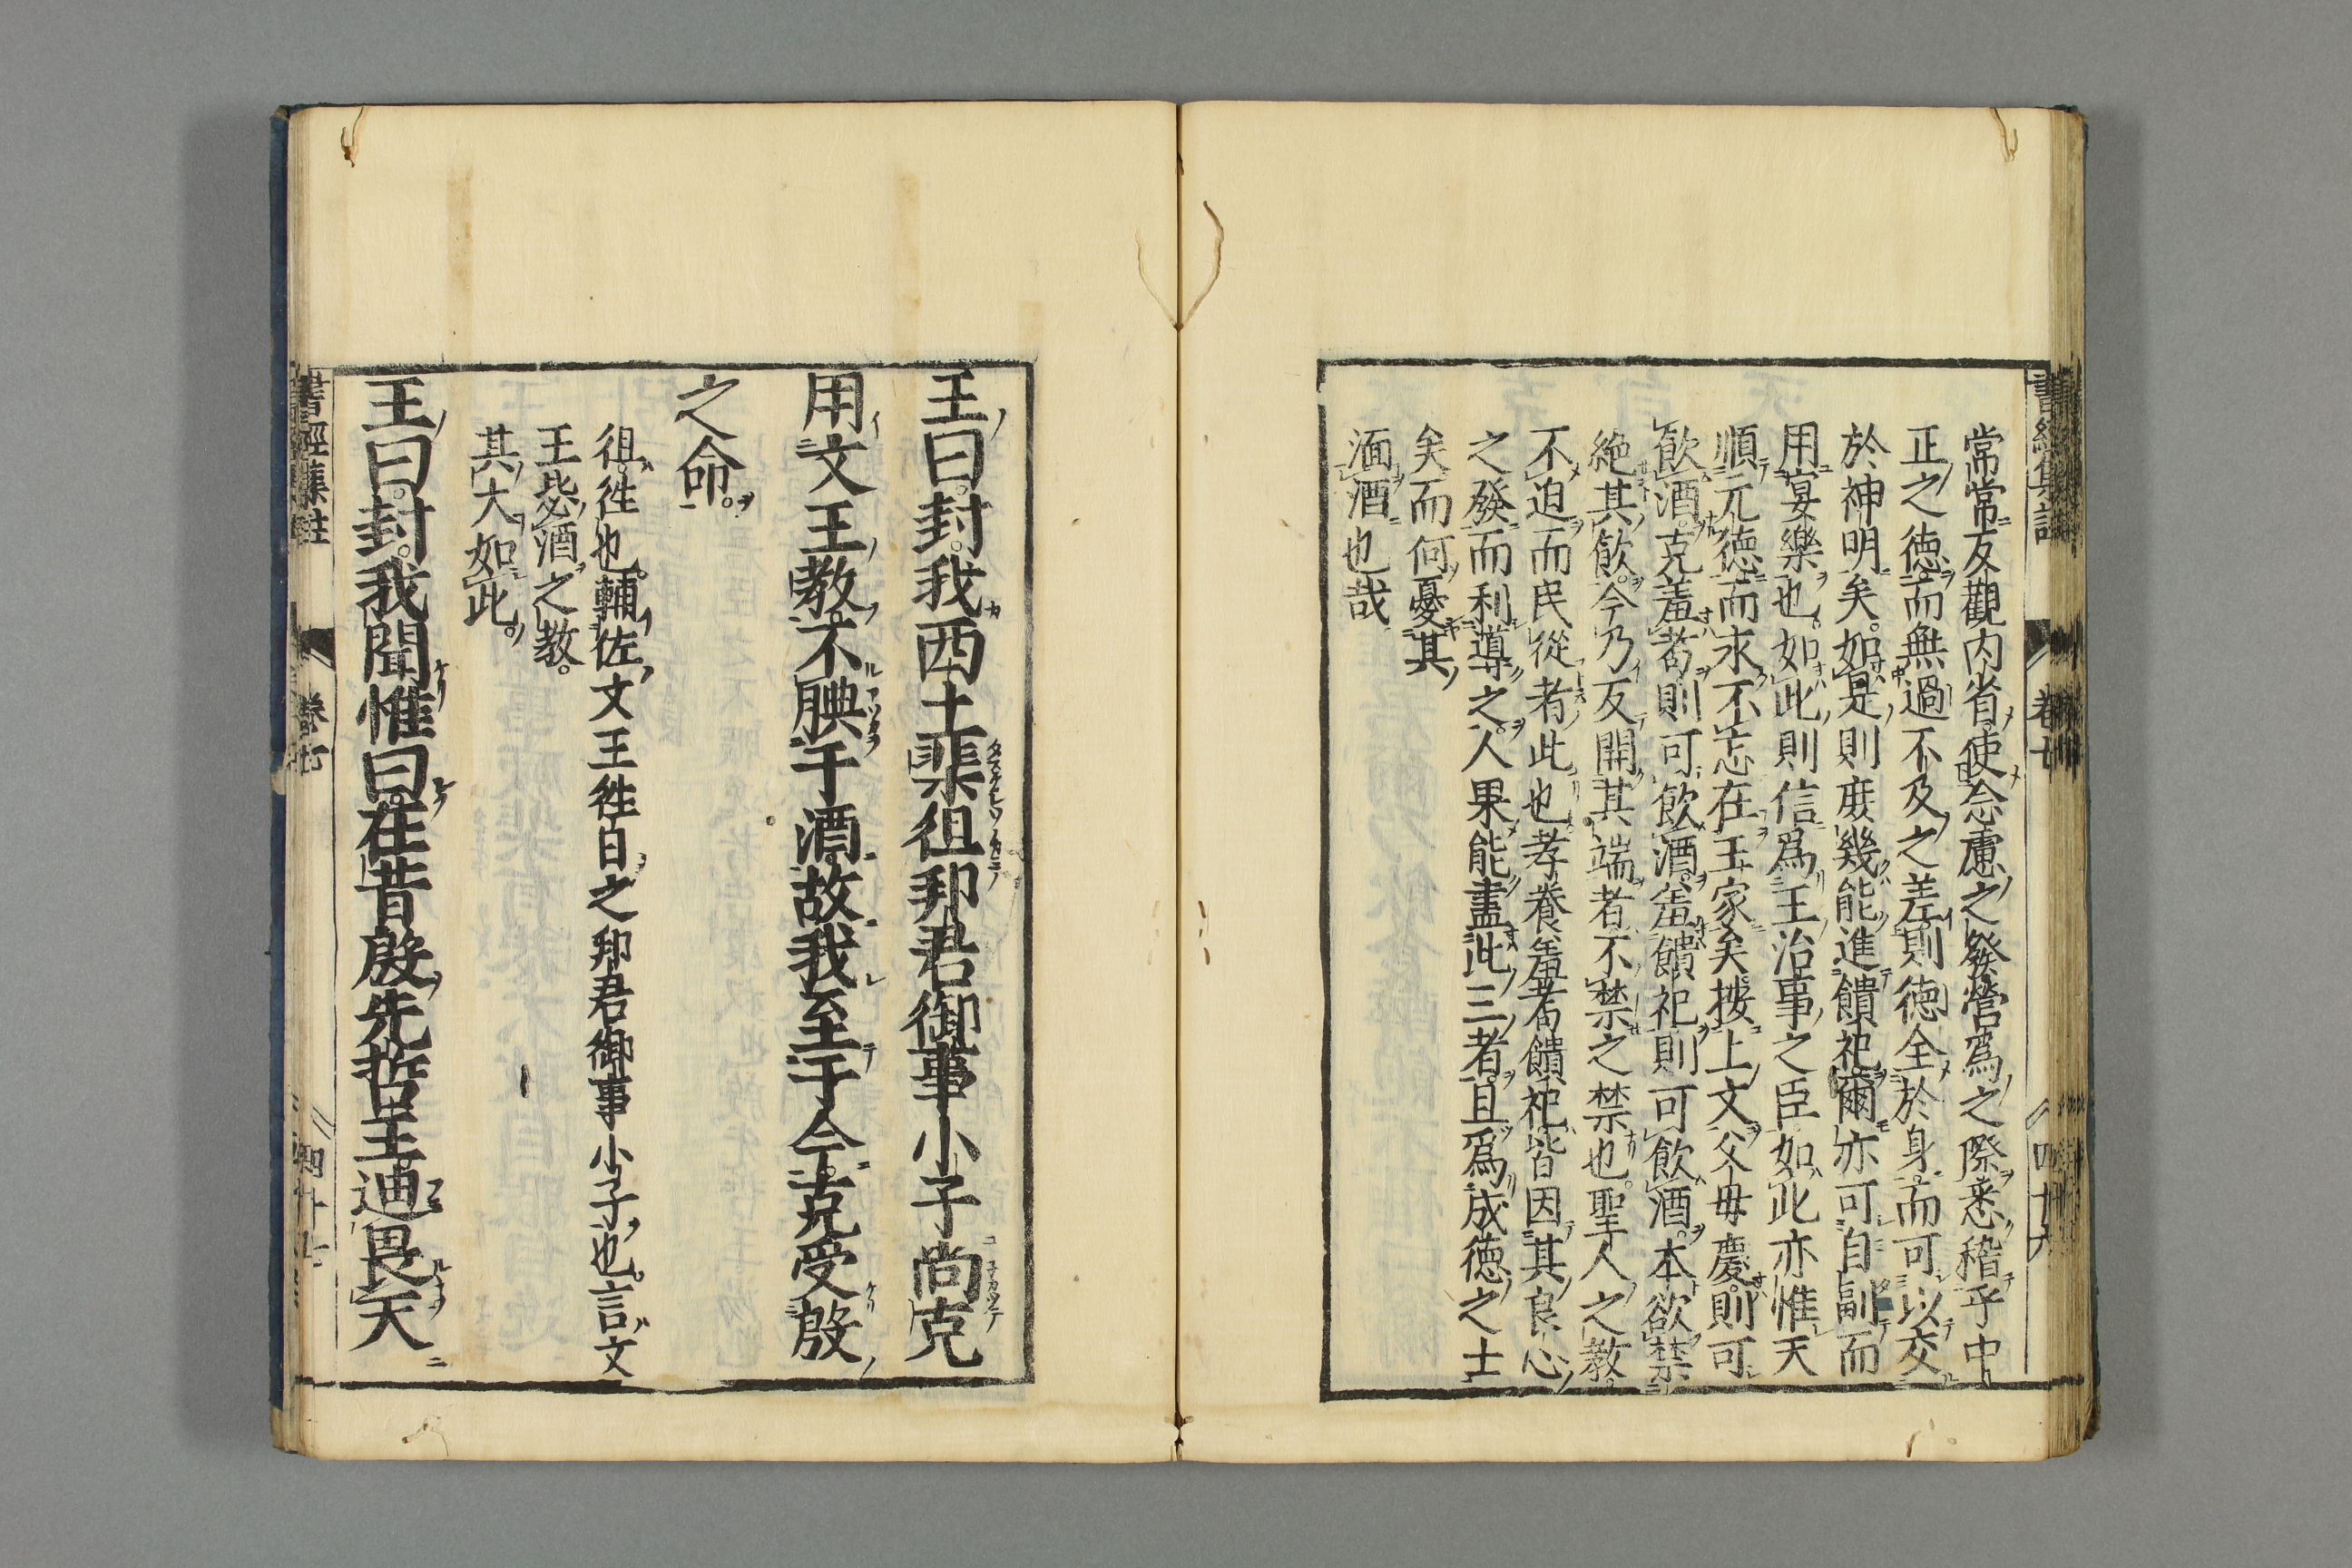 常常反觀内省使念慮之發營爲之際悉稽乎中
正之徳而無過不及之差則徳全於身而可以交
於神明矣如是則庻幾能進饋祀爾亦可自副而
用宴樂也如此則信爲王治事之臣如此亦惟天
順元徳而永不忘在王家矣按上文父母慶則可
飲酒克羞耉則可飲酒羞饋祀則可飲酒本欲禁
絶其飲今乃反開其端者不禁之禁也聖人之教
不迫而民從者此也孝養羞耉饋祀皆因其良心
之發而利導之人果能盡此三者且爲成徳之士
矣而何憂其
湎酒也哉
王曰封我西土棐徂邦君御事小子尚克
用文王教不腆于酒故我至于今克受殷
之命
徂徃也輔佐文王徃日之邦君御事小子也言文
王毖酒之教
其大如此
王曰封我聞惟曰在昔殷先哲王迪畏天
書經集註 卷七 四十七